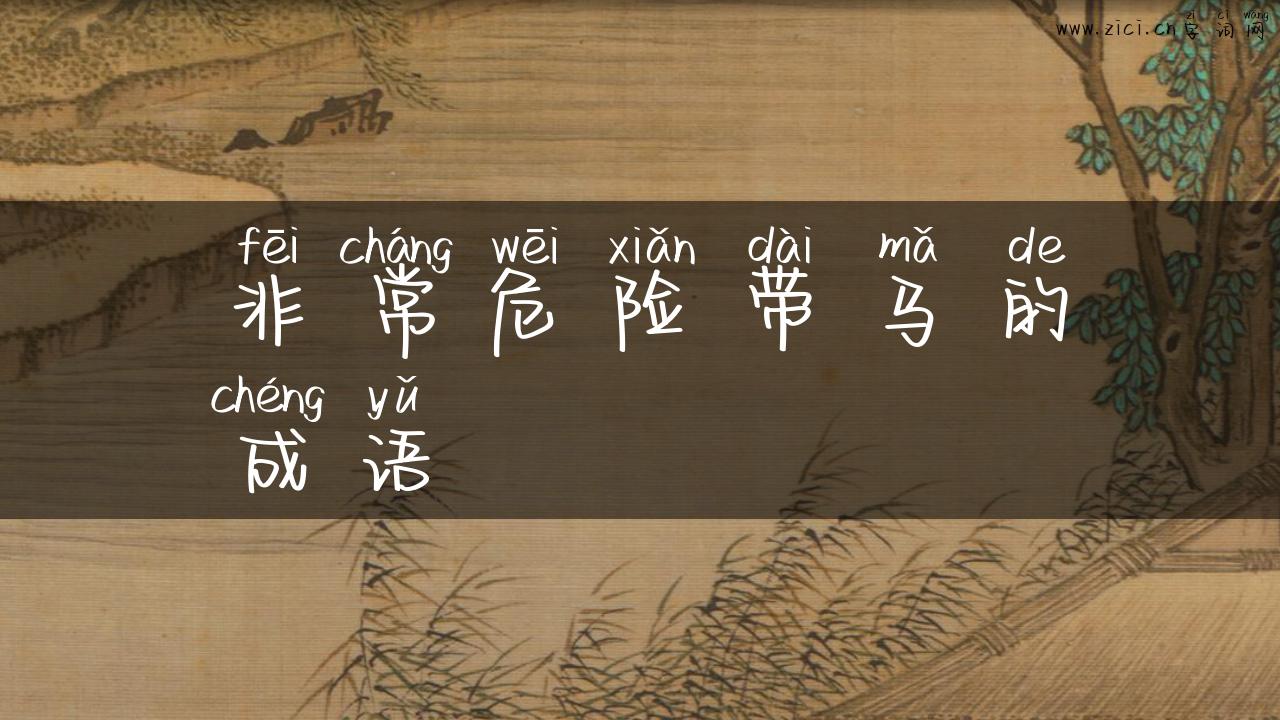 zì cí wǎng
www.zici.cn字词网
fēi cháng wēi xiǎn dài mǎ de
非常危险带马的
chéng yǔ
成语